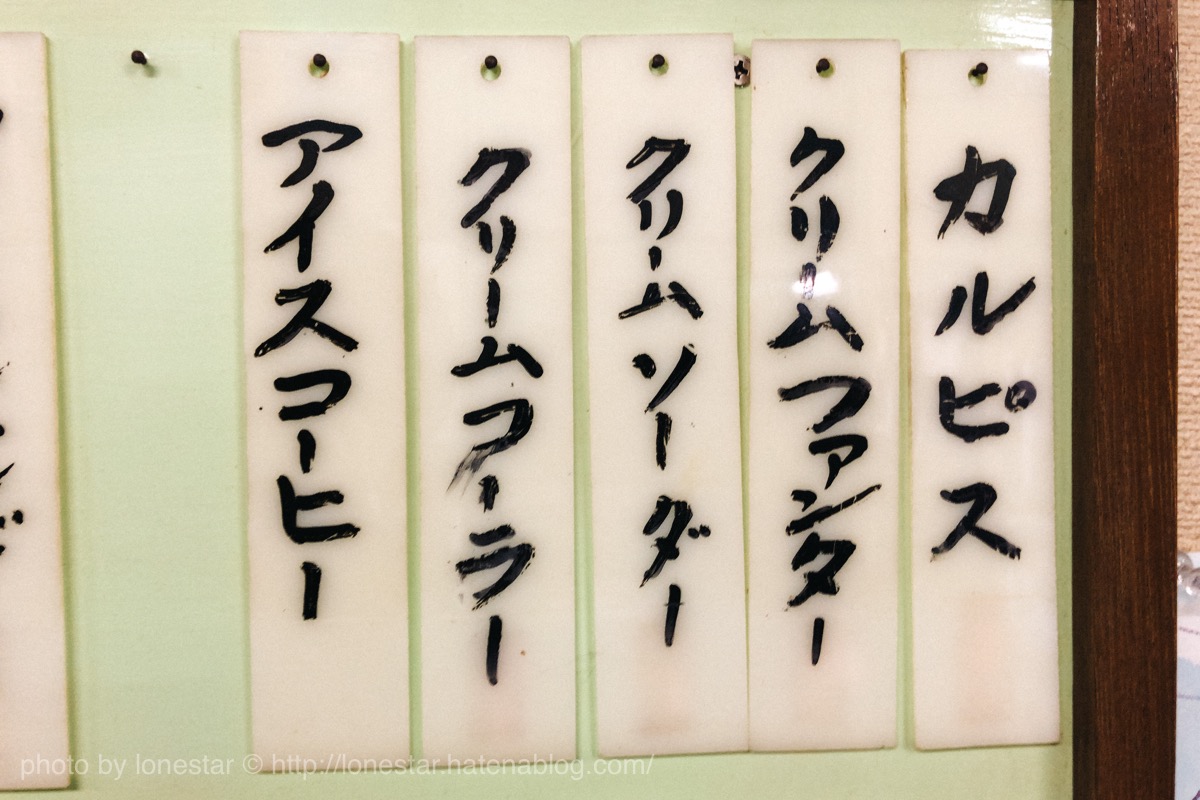 カルピス
クリームファンター
クリームソーダー
クリームコーラー
アイスコーヒー
photo by lonestar © http://lonestar.hatenablog.com/